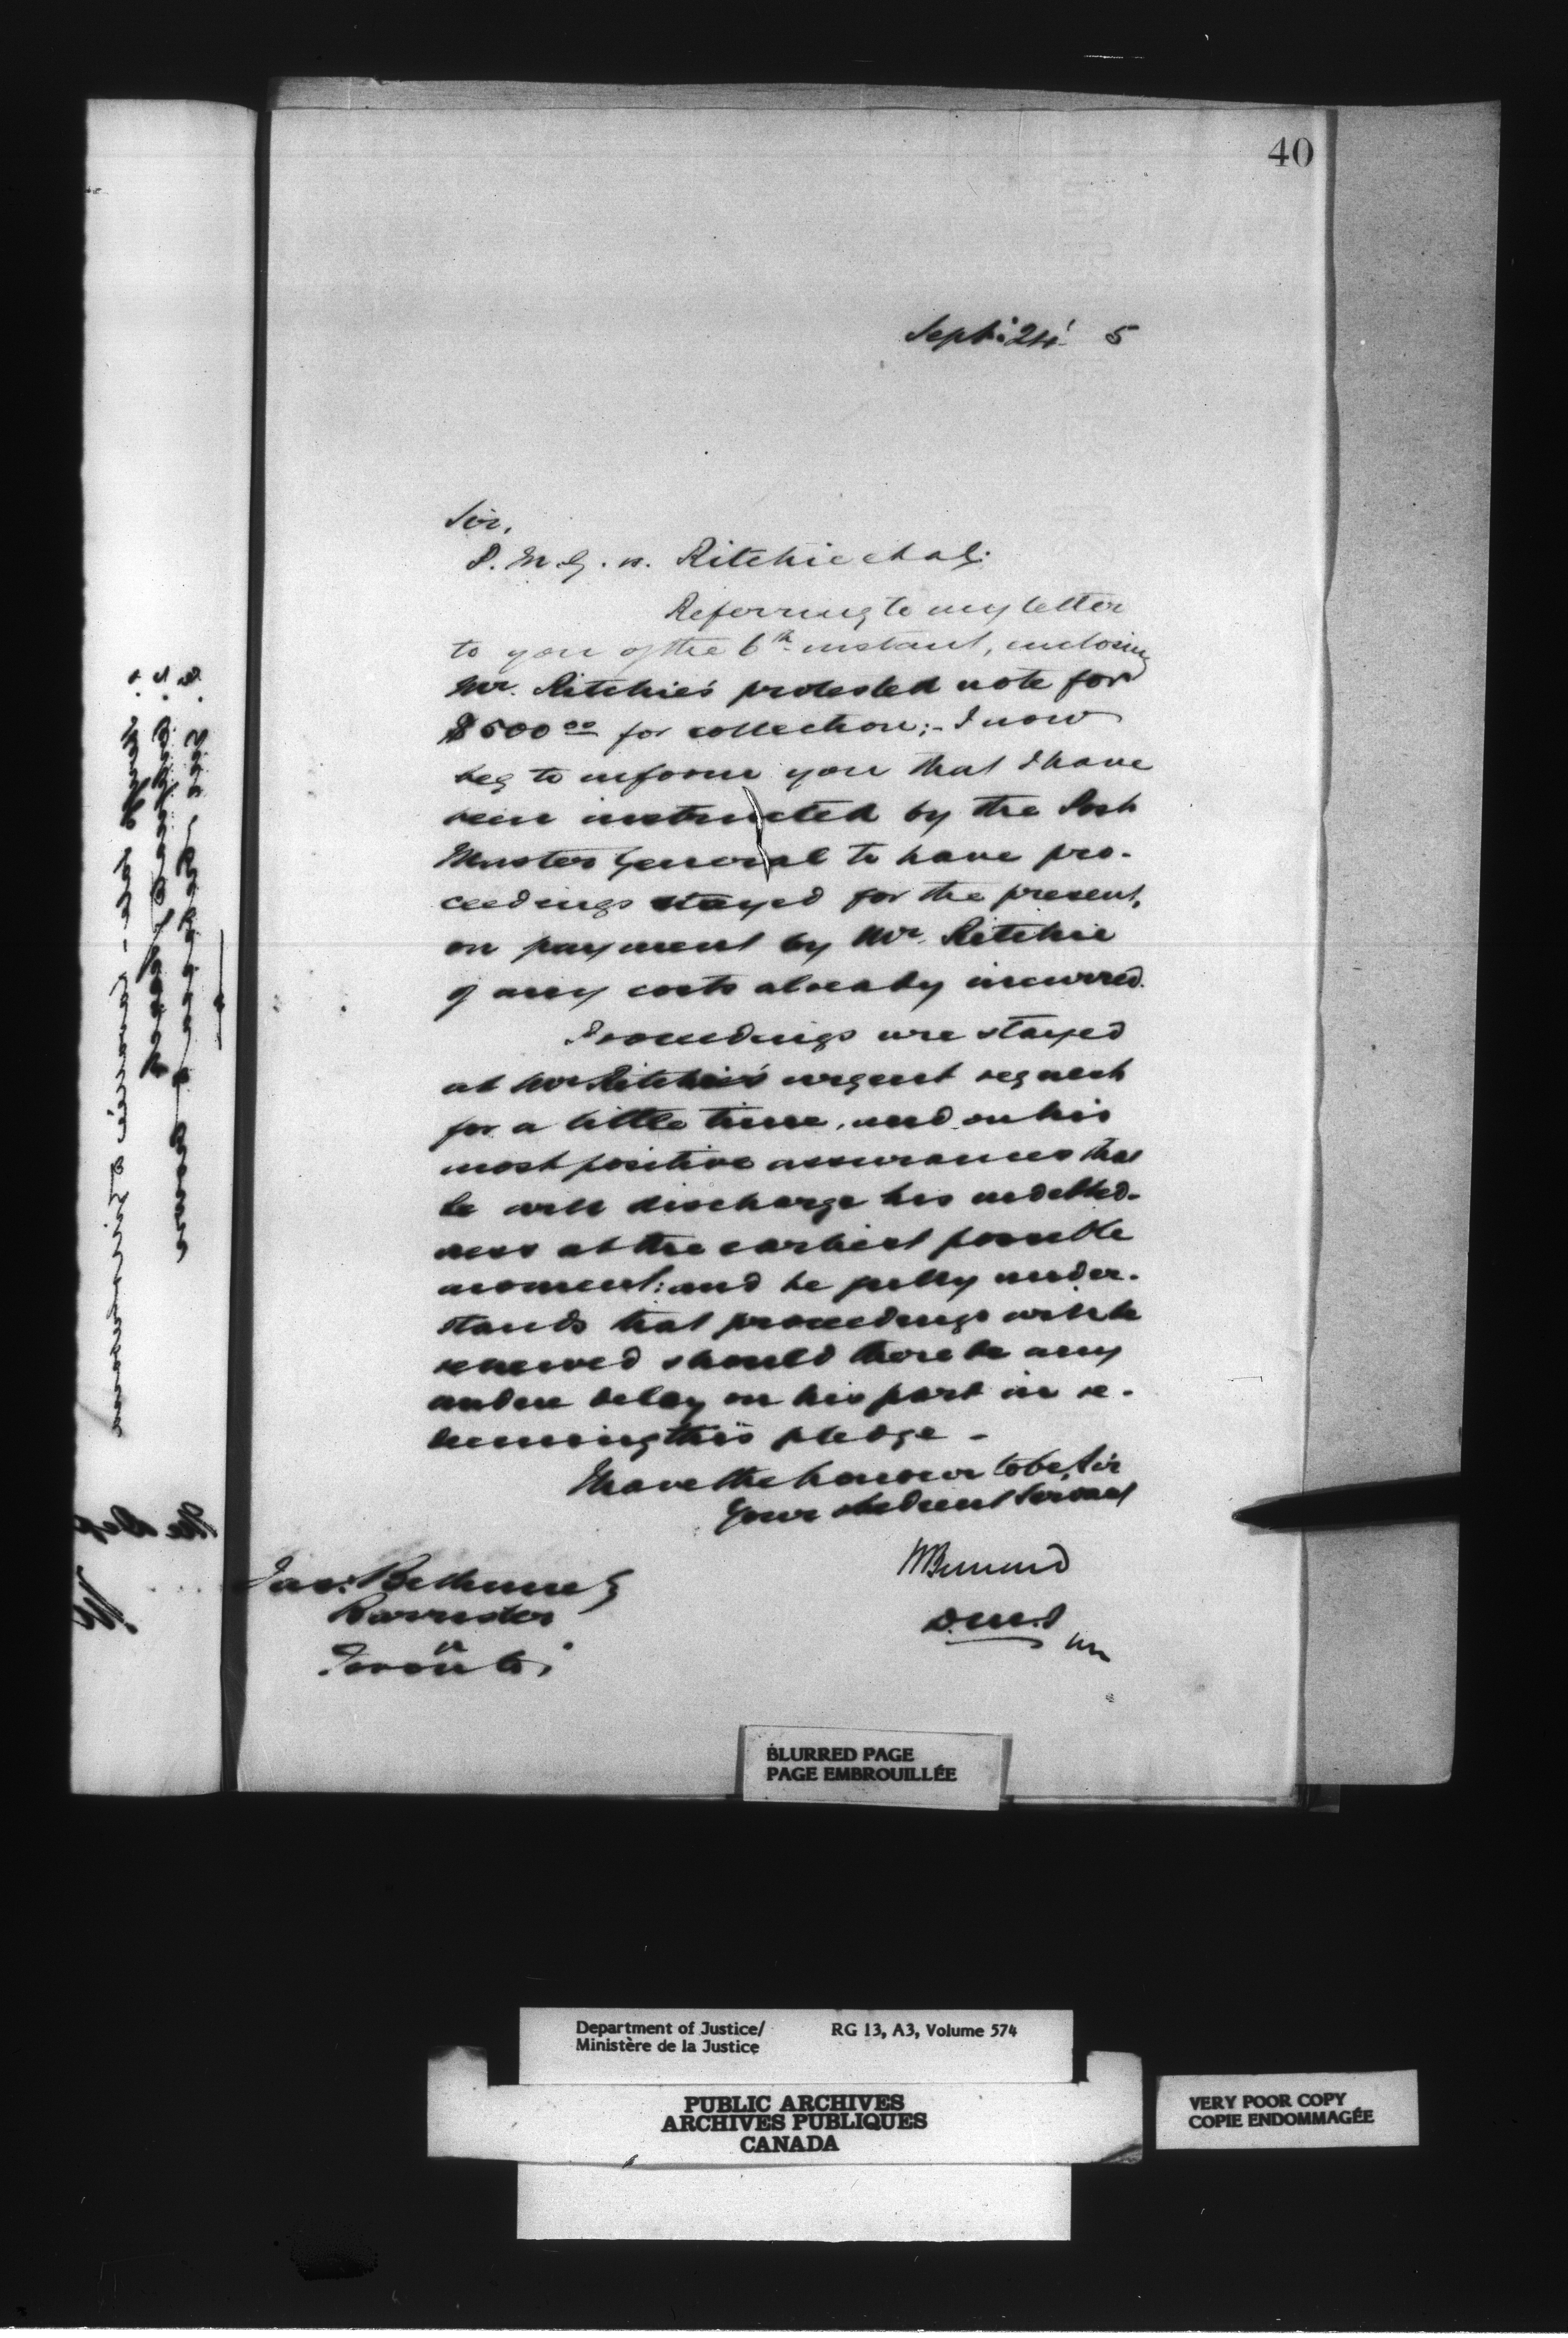 40
Sept: 24 5
Sir,
P. M. G. vs. Ritchie et al:
Referring to my letter
to you of the 6th instant, enclosing
Mr. Ritchie's protested note for
$500 00 for collection; - I now
beg to inform you that I have
been instructed by the Post
Master General to have pro-
ceedings stayed for the present,
on payment by Mr. Ritchie
of any costs already incurred.
Proceedings are stayed
at Mr Ritchie's urgent request
for a little time, and on his
most positive assurances that
he will discharge his indebted-
ness at the earliest possible
moment: and he fully under-
stands that proceedings will be
renewed should there be any
undue delay on his part in re-
deeming this pledge -
I have the honour to be, Sir
Your obedient Servant
H Bernard
D.M.J
Jas: Bethune
Barrister
Toronto
BLURRED PAGE
PAGE EMBROUILLÉE
Department of Justice/ RG 13, A3, Volume 574
Ministère de la Justice
PUBLIC ARCHIVES
ARCHIVES PUBLIQUES
CANADA
VERY POOR COPY
COPIE ENDOMMAGÉE